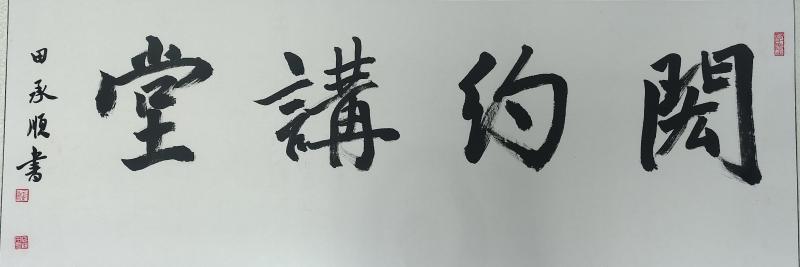 閎約講堂
田承順書